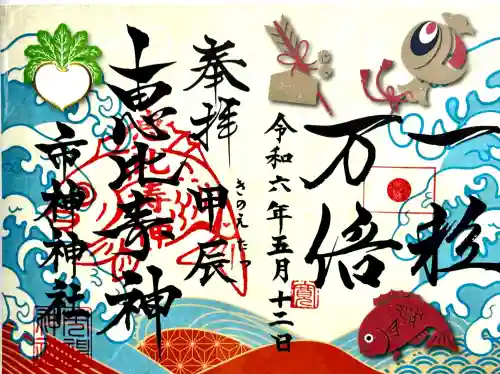 一粒
万倍
令和六年五月十二日
奉拝 甲辰
きのえたつ
十恵比寿神
市神神社